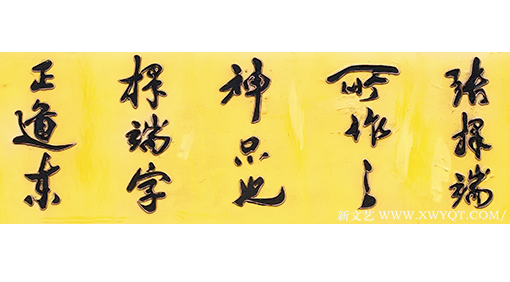 张择端
所作之
神品也
择端字
正道东
新文艺 WWW.XWYQT.COM/